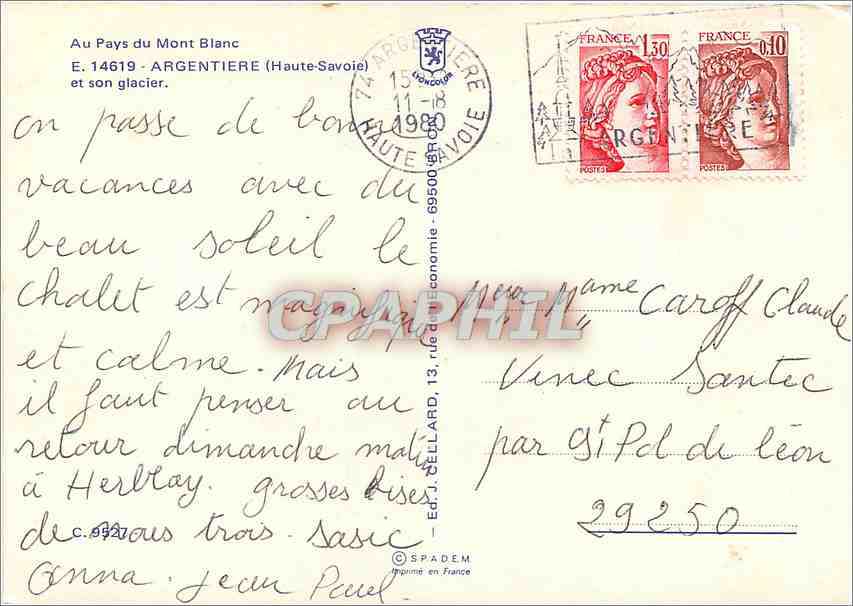 Au Pays du Mont Blanc
E. 14619 - ARGENTIERE (Haute-Savoie)
et son glacier.
LYONCOLOR
74 ARGENTIERE
15
11-8
1980
HAUTE SAVOIE
FRANCE 1,30
POSTES
FRANCE 0,10
POSTES
ARGENTIERE
on passe de bonne
vacances avec du
beau soleil le
chalet est magnifique
et calme. Mais
il faut penser au
retour dimanche matin
à Herblay. grosses bises
de nous trois. Sasic
Anna. Jean Paul
C. 9527
Ed. J. CELLARD, 13, rue de l'Economie - 69500 BRON
CPAPHIL
Meur Mame Caroff Claude
Vinec Santec
par St Pol de léon
29250
© S.P.A.D.E.M.
Imprimé en France